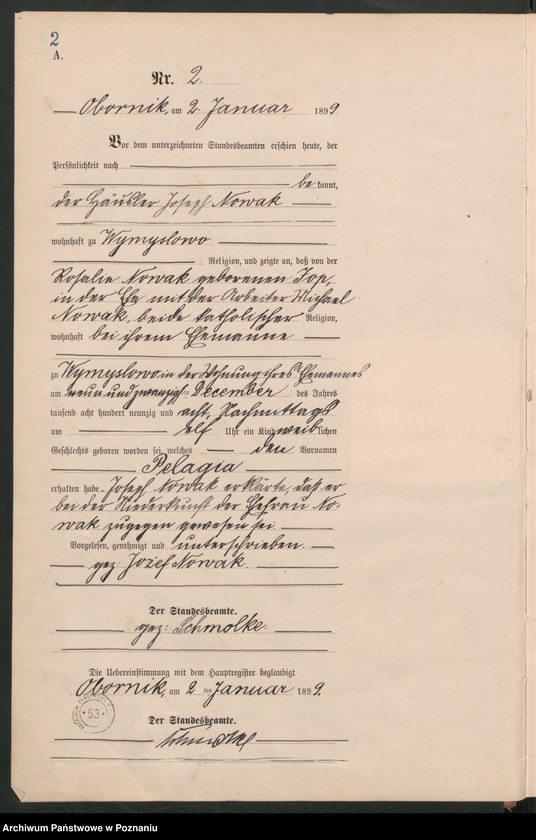 2
A.
Nr. 2.
Obornik, am 2. Januar 1899.
Vor dem unterzeichneten Standesbeamten erschien heute, der
Persönlichkeit nach
bekannt,
der Häusler Joseph Nowak
wohnhaft zu Wymyslowo
Religion, und zeigte an, daß von der
Rosalie Nowak geborenen Top,
in der Ehe mit der Arbeiter Michael
Nowak, beide katholischer Religion,
wohnhaft bei ihrem Ehemanne
zu Wymyslowo in der Wohnung ihres Ehemannes
am neun und zwanzigsten December des Jahres
tausend acht hundert neunzig und acht, Nachmittags
um elf Uhr ein Kind weiblichen
Geschlechts geboren worden sei, welches den Vornamen
Pelagia
erhalten habe. Joseph Nowak erklärte, daß er
bei der Niederkunft der Ehefrau No-
wak zugegen gewesen sei.
Vorgelesen, genehmigt und unterschrieben.
gez: Jozef Nowak.
Der Standesbeamte.
gez: Schmolke.
Die Uebereinstimmung mit dem Hauptregister beglaubigt
Obornik, am 2 ten Januar 1899.
53
Der Standesbeamte.
Archiwum Państwowe w Poznaniu